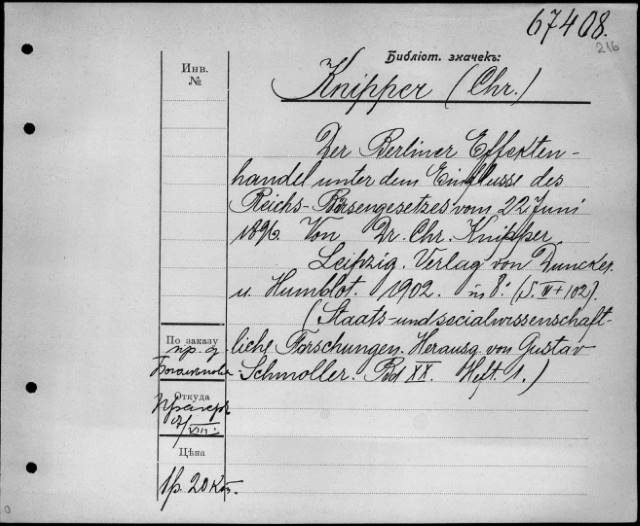 67408.
216
Библіот. значекъ:
Инв.
№
Knipper (Chr.)
Der Berliner Effekten-
handel unter dem Einflusse des
Reichs-Börsengesetzes vom 22 Juni
1896. Von Dr. Chr. Knipper.
Leipzig. Verlag von Duncker
u. Humblot. 1902. in 8º. (S. IV+102).
(Staats- und socialwissenschaft-
liche Forschungen. Herausg. von Gustav
Schmoller. Bd XX. Heft. 1.)
По заказу
пр-д
Откуда
Цѣна
1р. 20 к.